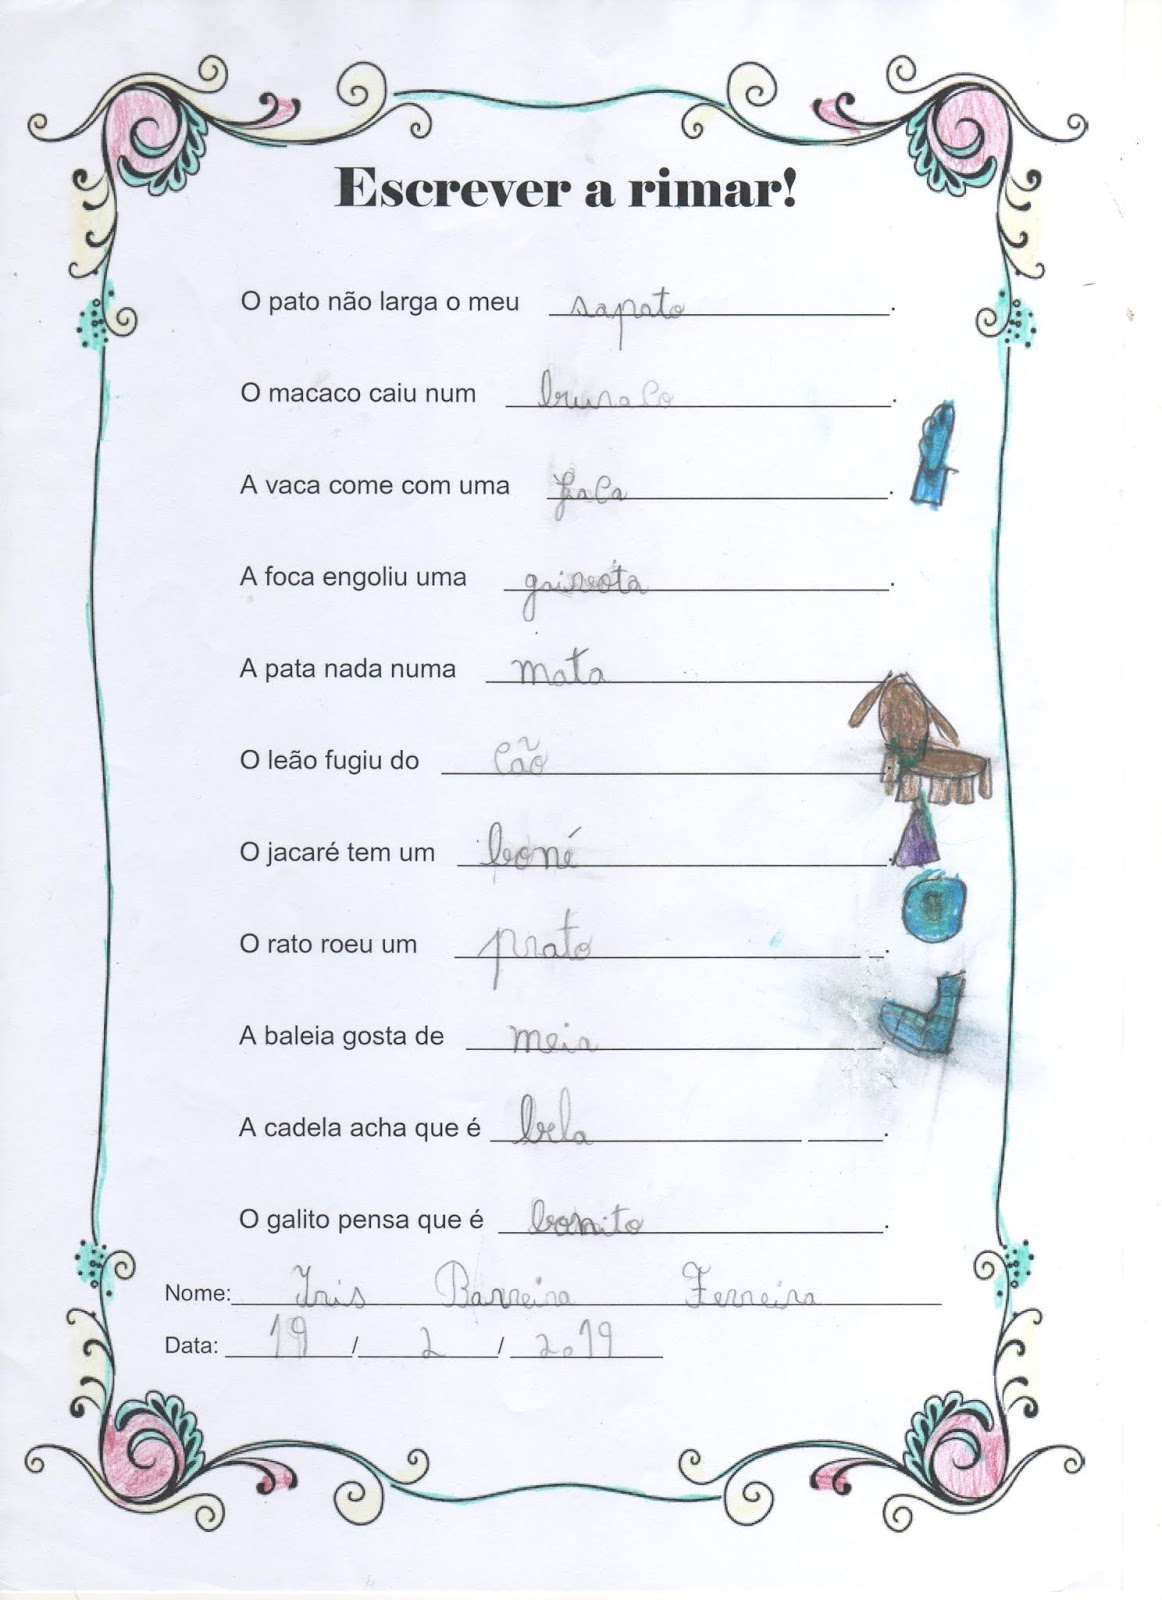 Escrever a rimar!
O pato não larga o meu sapato.
O macaco caiu num buraco.
A vaca come com uma faca.
A foca engoliu uma gaivota.
A pata nada numa mata
O leão fugiu do cão.
O jacaré tem um boné.
O rato roeu um prato.
A baleia gosta de meia.
A cadela acha que é bela.
O galito pensa que é bonito.
Nome: Iris Barreira Ferreira
Data: 19/2/2019